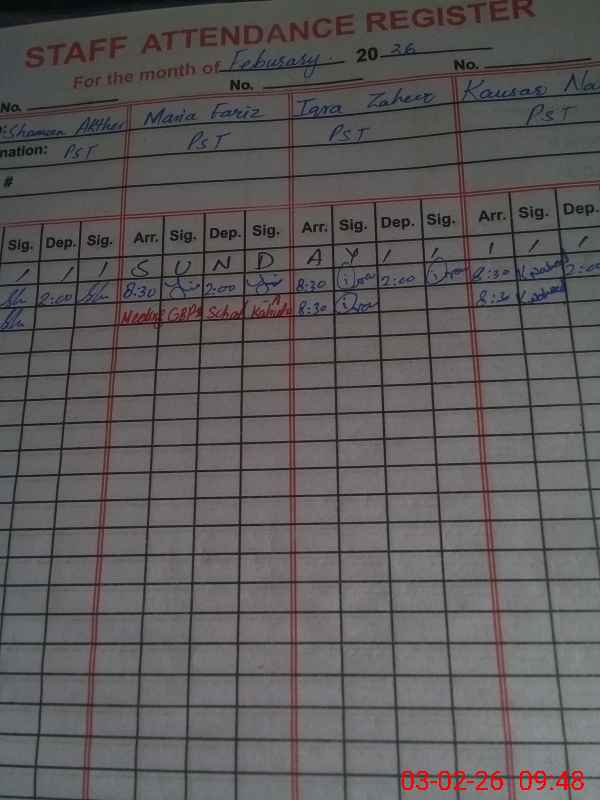 STAFF ATTENDANCE REGISTER
For the month of Feburary. 2026
No. No. No.
Shameen Akther Maria Fariz Iqra Zaheer Kausar
nation: PST PST PST PST
#
Sig. Dep. Sig. Arr. Sig. Dep. Sig. Arr. Sig. Dep. Sig. Arr. Sig. Dep.
/ / / S U N D A Y / / / / /
Sh 2:00 Sh 8:30 2:00 8:30 2:00 8:30 2:00
Sh Meeting GBPS School 8:30 8:30
03-02-26 09:48